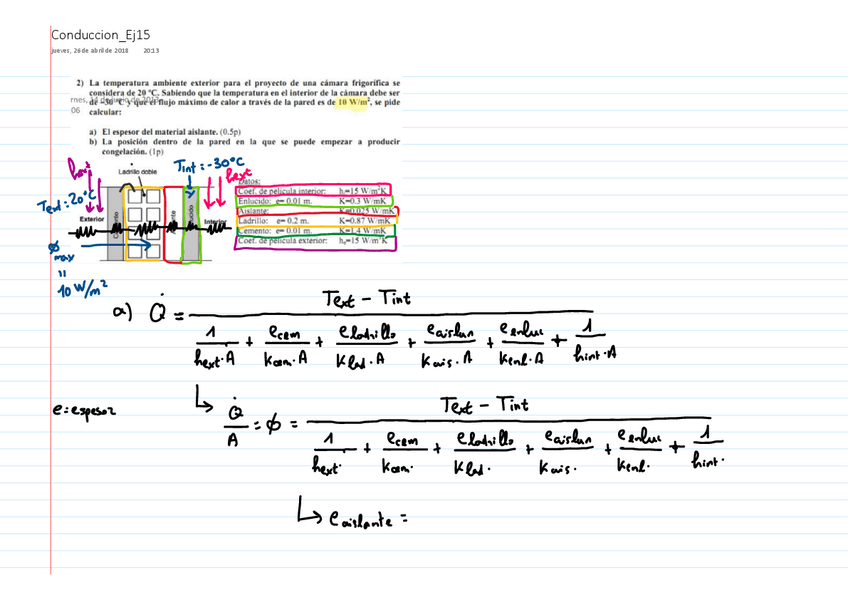 Conduccion_Ej15
jueves, 26 de abril de 2018 20:13
2) La temperatura ambiente exterior para el proyecto de una cámara frigorífica se
considera de 20 °C. Sabiendo que la temperatura en el interior de la cámara debe ser
de -30 °C y que el flujo máximo de calor a través de la pared es de 10 W/m², se pide
06
calcular:
a) El espesor del material aislante. (0.5p)
b) La posición dentro de la pared en la que se puede empezar a producir
congelación. (1p)
Ladrillo doble
Tint: -30°C
hext
Text: 20°C
Exterior
Interior
Datos:
Coef. de película interior: hᵢ=15 W/m²K
Enlucido: e= 0.01 m. K=0.3 W/mK
Aislante: K=0.025 W/mK
Ladrillo: e= 0.2 m. K=0.87 W/mK
Cemento: e= 0.01 m. K=1.4 W/mK
Coef. de película exterior: hₑ=15 W/m²K
ϕ max = 10 W/m²
a) Q̇ = Text - Tint
1/hext·A + ecem/Kcem·A + eladrillo/Klad·A + eaislan/Kais·A + eenluc/Kenl·A + 1/hint·A
e: espesor
↳ Q̇/A = ϕ = Text - Tint
1/hext· + ecem/Kcem· + eladrillo/Klad· + eaislan/Kais· + eenluc/Kenl· + 1/hint·
↳ eaislante =